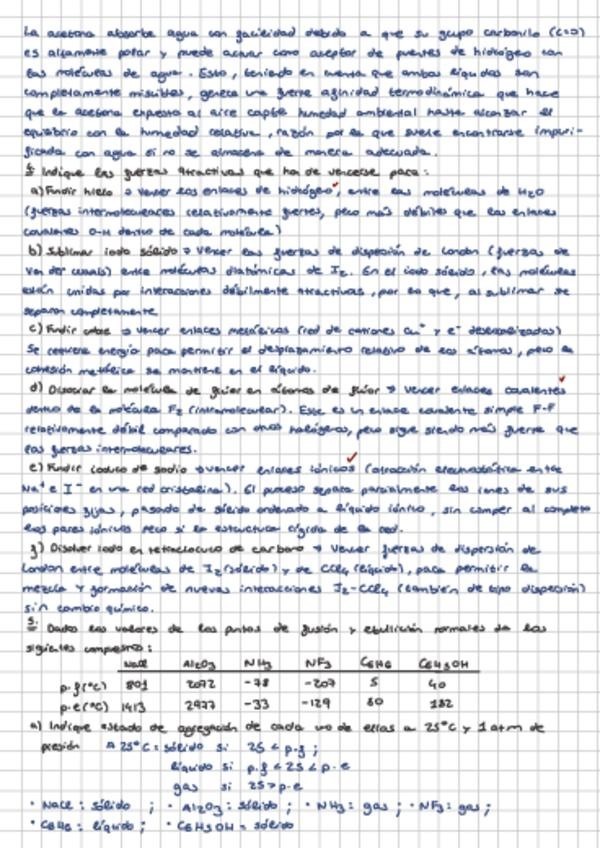 La acetona absorbe agua con facilidad debido a que su grupo carbonilo (C=O)
es altamente polar y puede actuar como aceptor de puentes de hidrógeno con
las moléculas de agua. Esto, teniendo en cuenta que ambos líquidos son
completamente miscibles, genera una fuerte afinidad termodinámica que hace
que la acetona expuesta al aire capte humedad ambiental hasta alcanzar el
equilibrio con la humedad relativa, razón por la que suele encontrarse impuri-
ficada con agua si no se almacena de manera adecuada.
4. Indique las fuerzas atractivas que ha de vencerse para:
a) Fundir hielo → vencer los enlaces de hidrógeno, entre las moléculas de H2O
(fuerzas intermoleculares relativamente fuertes, pero más débiles que los enlaces
covalentes O-H dentro de cada molécula)
b) Sublimar iodo sólido → vencer las fuerzas de dispersión de London (fuerzas de
Van der Waals) entre moléculas diatómicas de I2. En el iodo sólido, las moléculas
están unidas por interacciones débilmente atractivas, por lo que, al sublimar se
separan completamente
c) Fundir cobre → vencer enlaces metálicos (red de cationes Cu+ y e- deslocalizados)
Se requiere energía para permitir el desplazamiento relativo de los átomos, pero la
cohesión metálica se mantiene en el líquido.
d) Disociar la molécula de flúor en átomos de flúor → vencer enlaces covalentes
dentro de la molécula F2 (intramolecular). Este es un enlace covalente simple F-F
relativamente débil comparado con otros halógenos, pero sigue siendo más fuerte que
las fuerzas intermoleculares.
e) Fundir ioduro de sodio → vencer enlaces iónicos (atracción electrostática entre
Na+ e I- en una red cristalina). El proceso separa parcialmente los iones de sus
posiciones fijas, pasando de sólido ordenado a líquido iónico, sin romper al completo
los pares iónicos pero sí la estructura rígida de la red.
f) Disolver iodo en tetracloruro de carbono → Vencer fuerzas de dispersión de
London entre moléculas de I2 (sólido) y de CCl4 (líquido), para permitir la
mezcla y formación de nuevas interacciones I2-CCl4 (también de tipo dispersión)
sin cambio químico.
5. Dados los valores de los puntos de fusión y ebullición normales de los
siguientes compuestos:
NaCl Al2O3 NH3 NF3 C6H6 C6H5OH
p.f (°C) 801 2072 -78 -207 5 40
p.e (°C) 1413 2977 -33 -129 80 182
a) Indique estado de agregación de cada uno de ellos a 25°C y 1 atm de
presión A 25°C: sólido si 25 < p.f ;
líquido si p.f < 25 < p.e
gas si 25 > p.e
· NaCl: sólido ; · Al2O3: sólido ; · NH3: gas ; · NF3: gas ;
· C6H6: líquido ; · C6H5OH = sólido